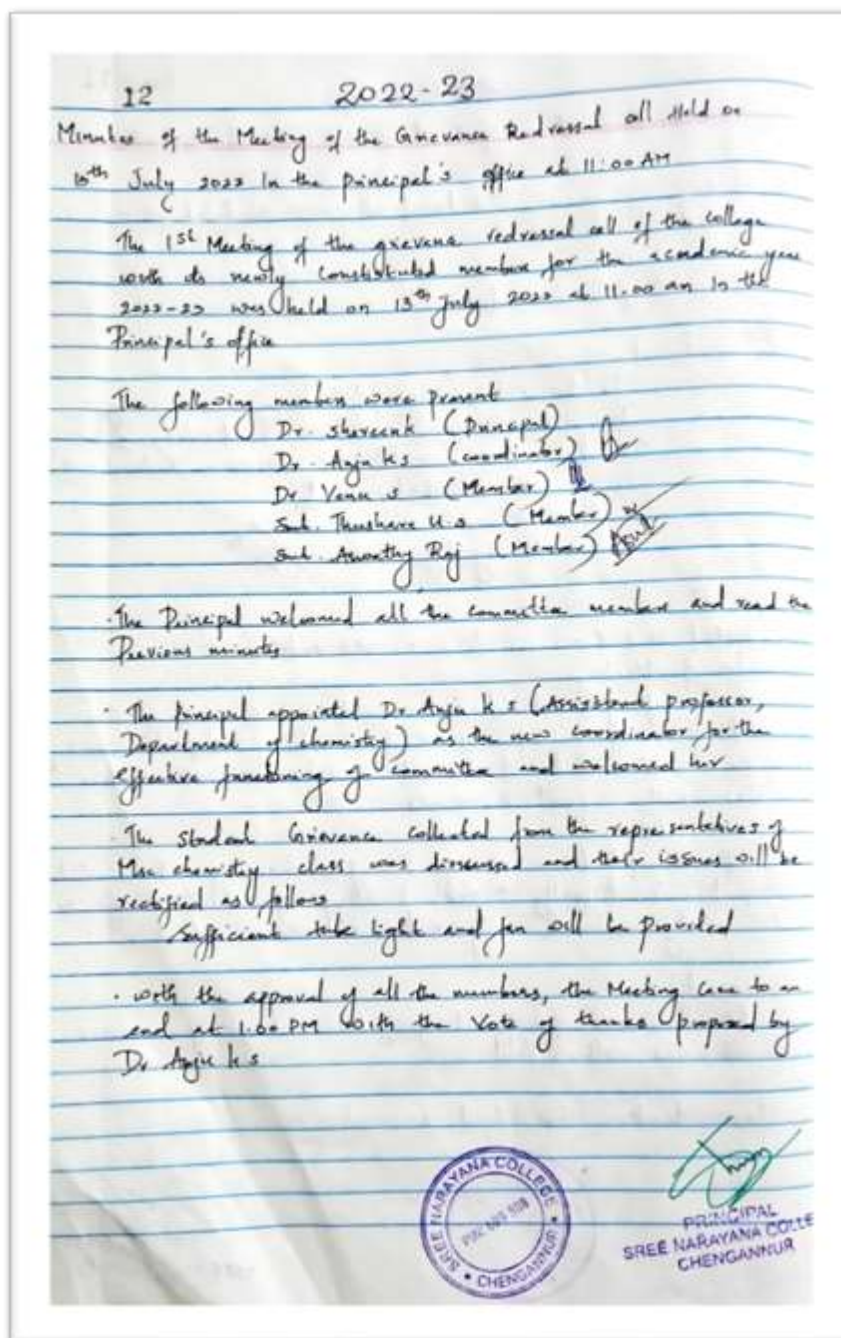 12 2022-23
Minutes of the Meeting of the Grievance Redressal cell Held on
13th July 2022 In the principal's office at 11:00 AM
The 1st Meeting of the grievance redressal cell of the college
with its newly constituted member for the academic year
2022-23 was held on 13th July 2022 at 11.00 am In the
Principal's office
The following members were present
Dr. Shareenk (Principal)
Dr. Anju k s (coordinator)
Dr Venu s (Member)
Smt. Thushara U.S (Member)
Smt. Aswathy Raj (Member)
· The Principal welcomed all the committee members and read the
Previous minutes
· The principal appointed Dr Anju k s (Assistant professor,
Department of chemistry) as the new coordinator for the
effective functioning of committee and welcomed her
· The student Grievance collected from the representatives of
Msc chemistry class was discussed and their issues will be
rectified as follows
Sufficient tube light and fan will be provided
· with the approval of all the members, the Meeting came to an
end at 1.00 PM with the Vote of thanks proposed by
Dr Anju k s
SREE NARAYANA COLLEGE
CHENGANNUR
PRINCIPAL
SREE NARAYANA COLLE
CHENGANNUR